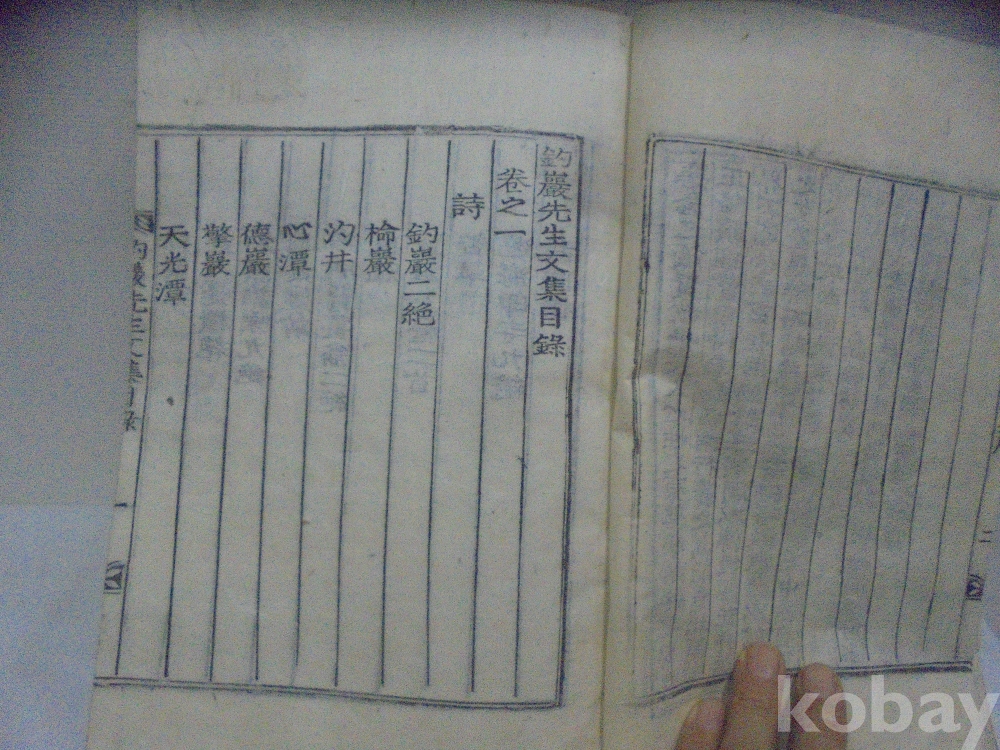 釣巖先生文集目錄
卷之一
詩
釣巖二絶
檜巖
汋井
心潭
德巖
擎巖
天光潭
釣巖先生文集目錄
一
二
kobay